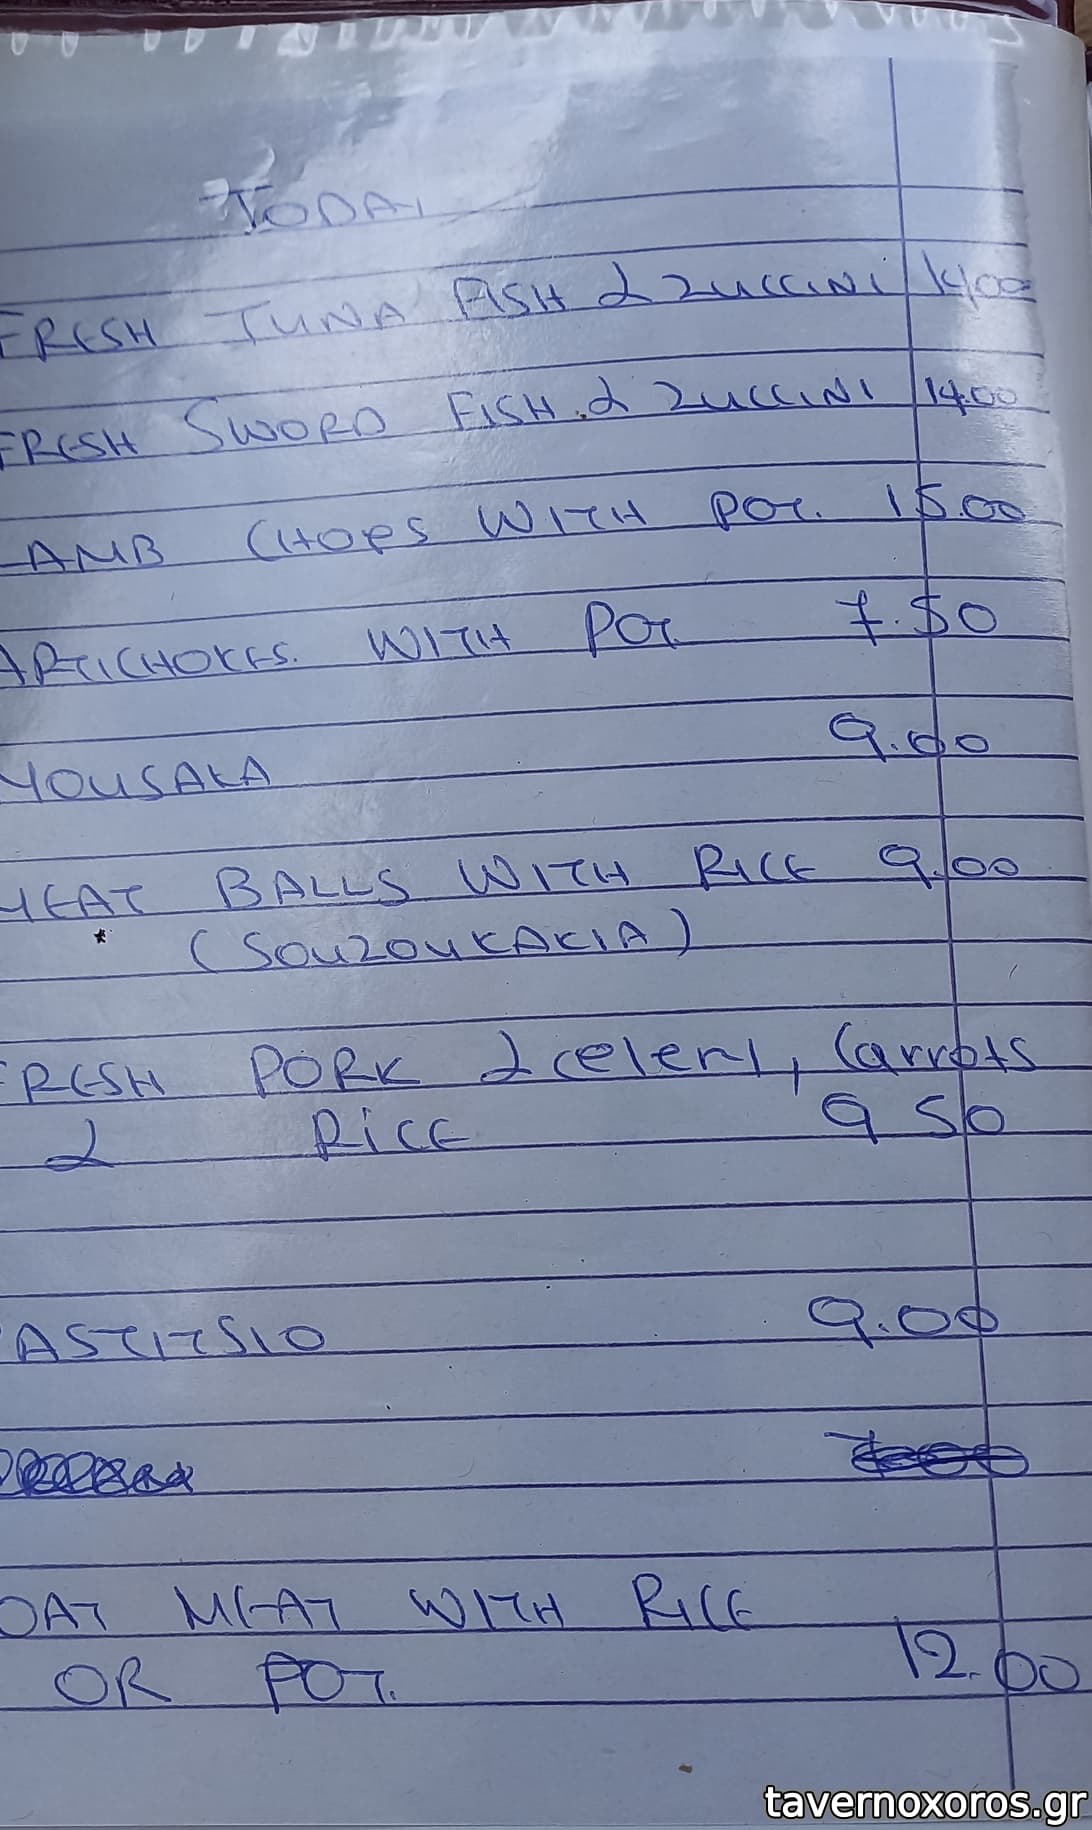 TODAY
FRESH TUNA FISH & ZUCCINI 14.00
FRESH SWORD FISH & ZUCCINI 14.00
LAMB CHOPS WITH POT. 15.00
ARTICHOKES. WITH POT 7.50
MOUSAKA 9.00
MEAT BALLS WITH RICE 9.00
(SOUZOUKAKIA)
FRESH PORK & celery, Carrots
& RICE 9 50
PASTITSIO 9.00
OAT MEAT WITH RICE
OR POT. 12.00
tavernoxoros.gr